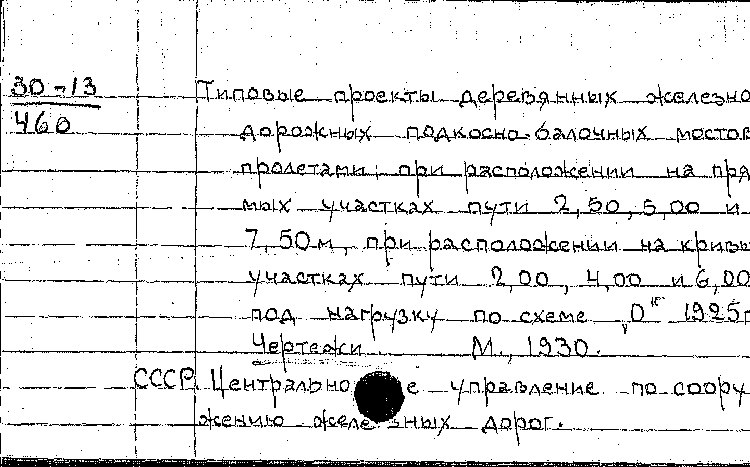 30-13
460
Типовые проекты деревянных железно
дорожных подкосно-балочных мостов
пролетами: при расположении на пря
мых участках пути 2,50, 5,00 и
7,50м, при расположении на кривы
участках пути 2,00, 4,00 и 6,00
под нагрузку по схеме 1925г
Чертежи М., 1930.
СССР. Центрально е управление по соору
жению желе зных дорог.